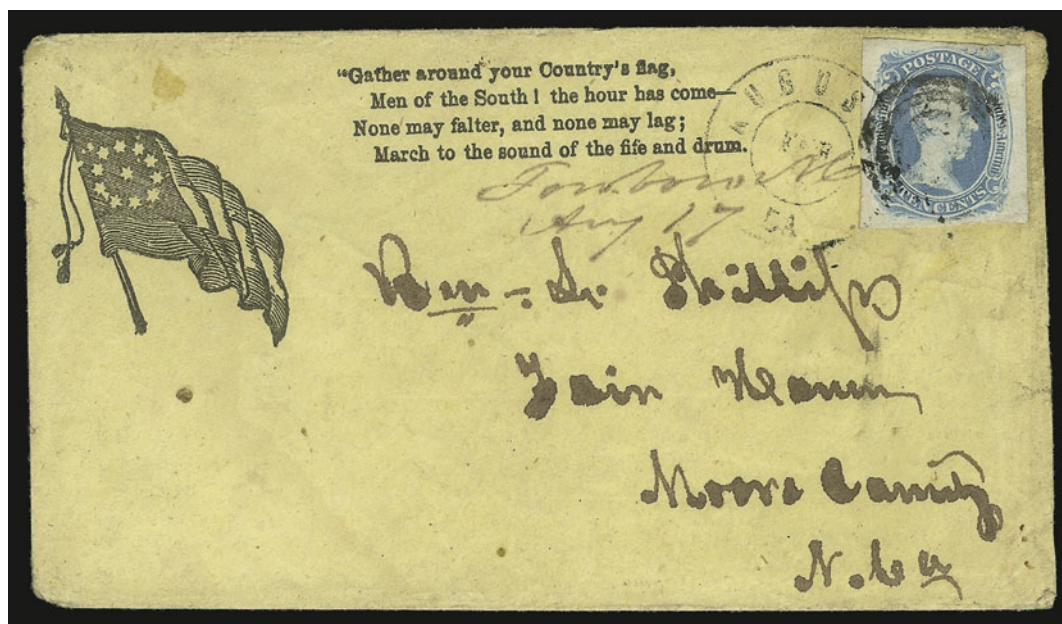 "Gather around your Country's flag,
Men of the South! the hour has come—
None may falter, and none may lag;
March to the sound of the fife and drum.
AUGUS
GA
POSTAGE
TEN CENTS
Aug 17
Phillips
Moore County
N. Ca